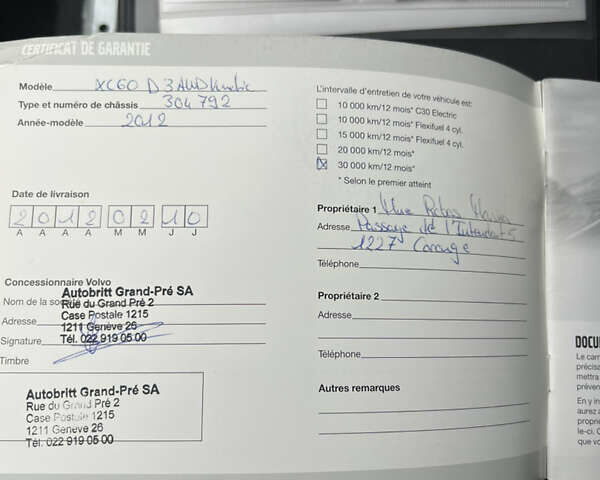 CERTIFICAT DE GARANTIE
Modèle XC60 D3 AWD Kinetic
Type et numéro de châssis 304792
Année-modèle 2012
Date de livraison
2 0 1 2 0 2 1 0
A A A A M M J J
Concessionnaire Volvo
Nom de la so
Adresse
Signature
Timbre
Autobritt Grand-Pré SA
Rue du Grand Pré 2
Case Postale 1215
1211 Genève 26
Tél. 022 919 05 00
Autobritt Grand-Pré SA
Rue du Grand Pré 2
Case Postale 1215
1211 Genève 26
Tél. 022 919 05 00
L'intervalle d'entretien de votre véhicule est:
10 000 km/12 mois* C30 Electric
10 000 km/12 mois* Flexifuel 4 cyl.
15 000 km/12 mois* Flexifuel 4 cyl.
20 000 km/12 mois*
30 000 km/12 mois*
* Selon le premier atteint
Propriétaire 1
Adresse Passage de l'
1227 Carouge
Téléphone
Propriétaire 2
Adresse
Téléphone
Autres remarques
DOCU
Le carn
précisa
mettra
préven
En y in
aurez a
proprié
le-ci. C
que vo